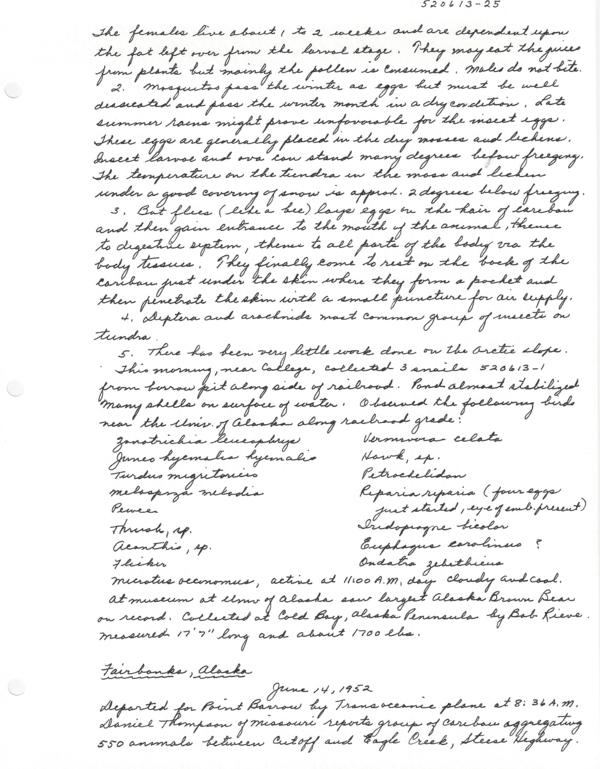 520613-25
The females live about 1 to 2 weeks and are dependent upon
the fat left over from the larval stage. They may eat the juices
from plants but mainly the pollen is consumed. Males do not bite.
2. Mosquitos pass the winter as eggs but must be well
dessicated and pass the winter month in a dry condition. Late
summer rains might prove unfavorable for the insect eggs.
These eggs are generally placed in the dry mosses and lichens.
Insect larvae and ova can stand many degrees below freezing.
The temperature on the tundra in the moss and lichen
under a good covering of snow is approx. 2 degrees below freezing.
3. Bot flies (like a bee) lays eggs on the hair of caribou
and then gain entrance to the mouth of the animal, thense
to digestive septem, thense to all parts of the body via the
body tissues. They finally come to rest on the back of the
caribou just under the skin where they form a pocket and
then penetrate the skin with a small puncture for air supply.
4. Diptera and arachnids most common group of insects on
tundra.
5. There has been very little work done on the Arctic slope.
This morning, near College, collected 3 snails 520613-1
from borrow pit along side of railroad. Pond almost stabilized
many shells on surface of water. Observed the following birds
near the Univ. of Alaska along railroad grade:
Zonotrichia leucophrys Vermivora celata
Junco hyemalis hyemalis Hawk, sp.
Turdus migritorius Petrochelidon
Melospiza melodia Riparia riparia (four eggs
Pewee just started, eye of emb. present)
Thrush, sp. Iridoprogne bicolor
Acanthis, sp. Euphagus carolinus ?
Flicker Ondatra zebethicus
Microtus oeconomus, active at 11:00 A.M. day cloudy and cool.
At museum at Univ of Alaska saw largest Alaska Brown Bear
on record. Collected at Cold Bay, Alaska Peninsula by Bob Rieve.
Measured 17'7" long and about 1700 lbs.
Fairbanks, Alaska
June 14, 1952
Departed for Point Barrow by Transoceanic plane at 8:36 A.M.
Daniel Thompson of Missouri reports group of caribou aggregating
550 animals between Cutoff and Eagle Creek, Steese Highway.